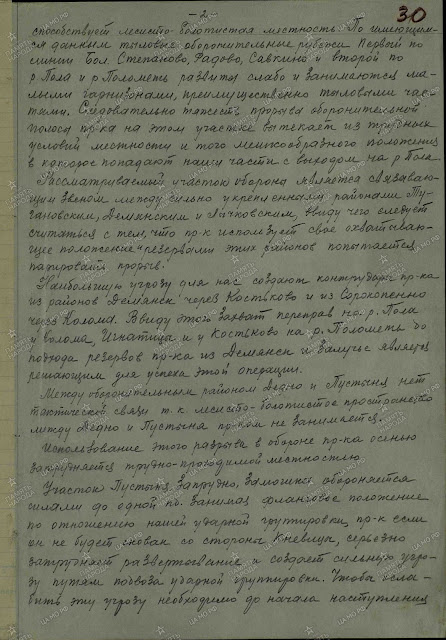 - 2 -
30
способствует лесисто-болотистая местность. По имеющим-
ся данным тыловые оборонительные рубежи первый по
линии Бол. Степаново, Радово, Савкино и второй по
р Пола и р Полометь развиты слабо и занимаются ма-
лыми гарнизонами, преимущественно тыловыми час-
тями. Следовательно тяжесть прорыва оборонительной
полосы пр-ка на этом участке вытекает из трудных
условий местности и того мешкообразного положения
в которое попадают наши части с выходом на р Пола.
Рассматриваемый участок обороны является связываю-
щим звеном между сильно укрепленными районами
Демянским и Лычковским, ввиду чего следует
считаться с тем, что пр-к использует свое охватываю-
щее положение и резервами этих районов попытается
парировать прорыв.
Наибольшую угрозу для нас создают контрудары пр-ка
из районов Демянск через Костьково и из Сорокопенно
через Колома. Ввиду этого захват переправ на р. Пола
у Колома, Игнатица и у Костьково на р. Полометь до
подхода резервов пр-ка из Демянск и Залучье является
решающим для успеха этой операции.
Между оборонительным районом Дедно и Пустыня нет
тактической связи т.к лесисто-болотистое пространство
между Дедно и Пустыня пр-ком не занимается.
Использование этого разрыва в обороне пр-ка осенью
затрудняется трудно-проходимой местностью
Участок Пустыня, Запрудно, обороняется
силами до одной пд. Занимая фланговое положение
по отношению нашей ударной группировки, пр-к если
он не будет скован со стороны Кневицы, серьезно
затрудняет развертывание и создает сильную угро-
зу путям подвоза ударной группировки. Чтобы осла-
бить эту угрозу необходимо до начала наступления